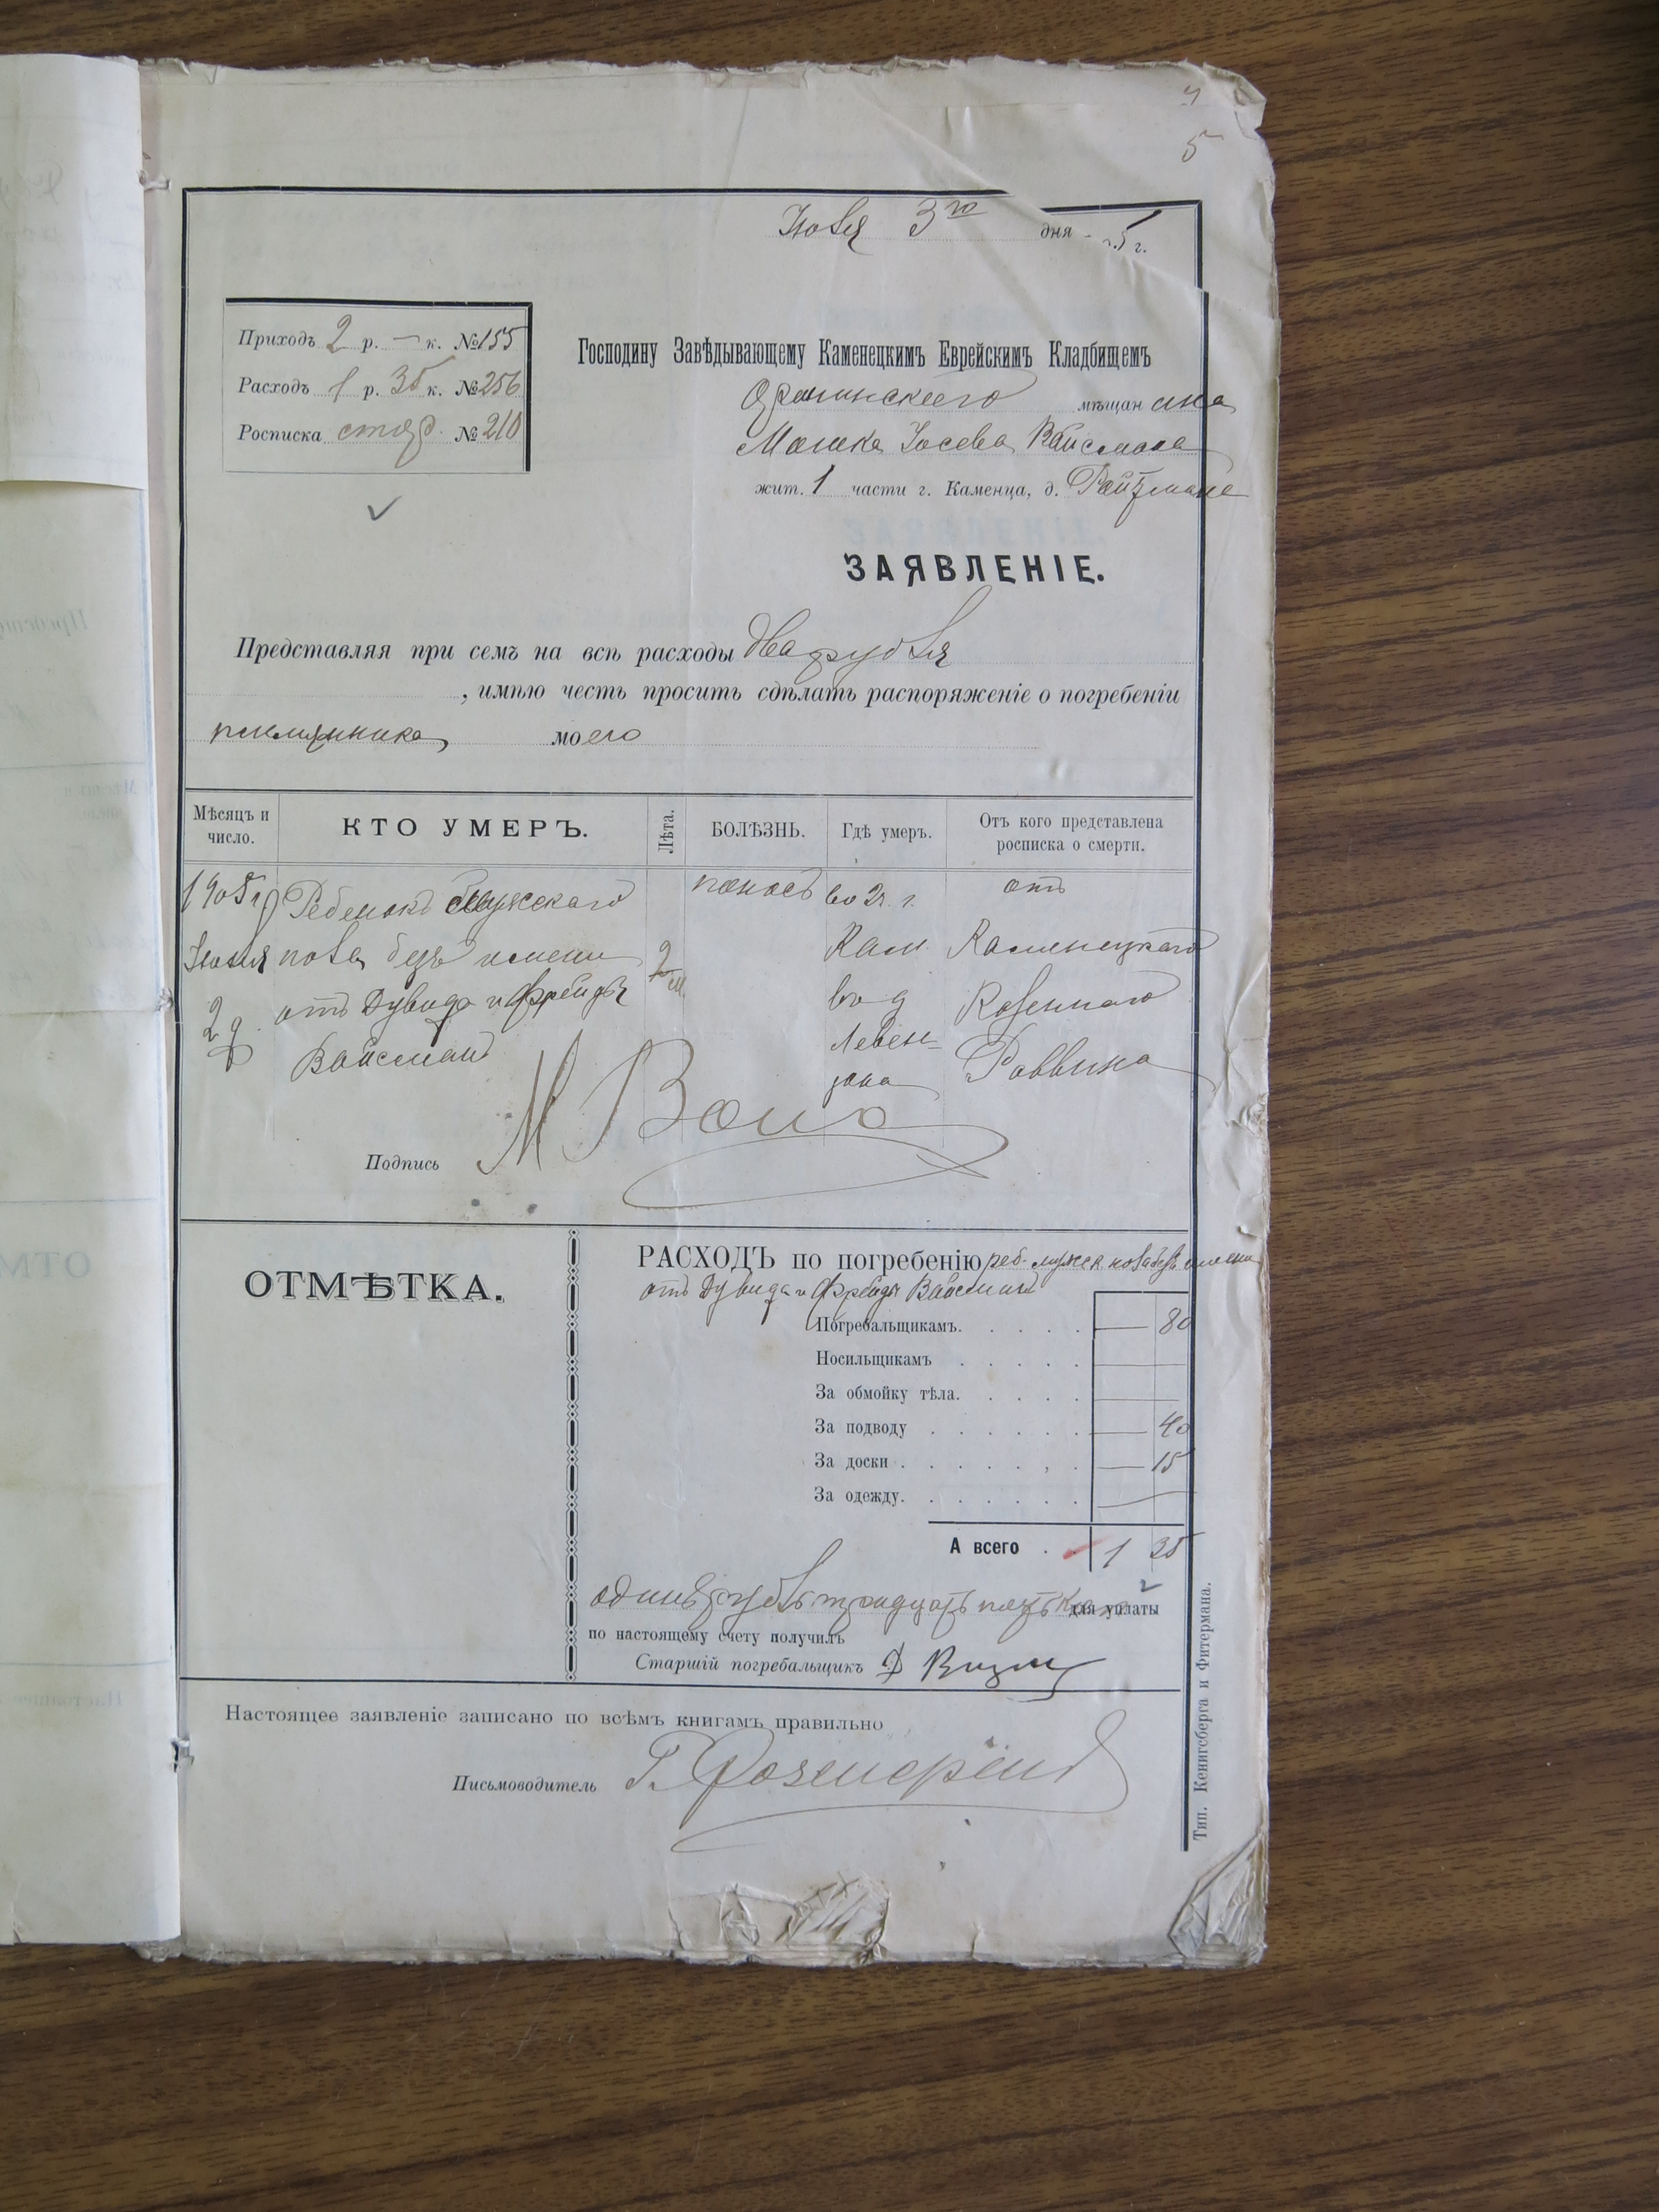 5
Июля 3го дня 5 г.
Приходъ 2 р. — к. № 155
Расходъ 1 р. 35 к. № 256
Росписка № 210
Господину Завѣдывающему Каменецкимъ Еврейскимъ Кладбищемъ
мѣщанина
Мошка Іосева Вайсмана
жит. 1 части г. Каменца, д. Ройзмана
ЗАЯВЛЕНІЕ.
Представляя при семъ на всѣ расходы два рубля
, имѣю честь просить сдѣлать распоряженіе о погребеніи
племяника моего
Мѣсяцъ и число.
КТО УМЕРЪ.
Лѣта.
БОЛѢЗНЬ.
Гдѣ умеръ.
Отъ кого представлена росписка о смерти.
1905 г
Июля
2 д.
Ребенокъ мужскаго
пола безъ имени
отъ Дувида и Фрейды
Вайсманъ
2 м.
поносъ
во 2 ч. г.
Кам.
въ д
Левен-
зона
отъ
Каменецкаго
Казеннаго
Раввина
Подпись М Вайс
ОТМѢТКА.
РАСХОДЪ по погребенію реб. мужск пола безъ имени
отъ Дувида и Фрейды Вайсманъ
Погребальщикамъ. — 80
Носильщикамъ
За обмойку тѣла.
За подводу — 40
За доски — 15
За одежду.
А всего 1 35
одинъ рубль тридцать пять коп для уплаты
по настоящему счету получилъ
Старшій погребальщикъ
Настоящее заявленіе записано по всѣмъ книгамъ правильно
Письмоводитель Г.
Тип. Кенигсберга и Фитермана.